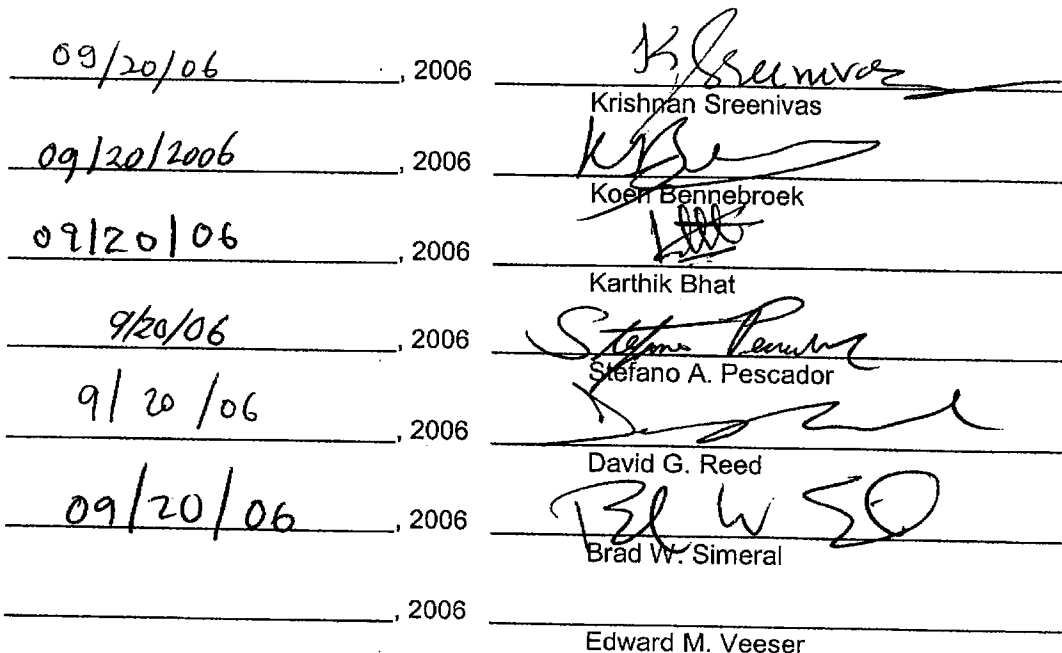 09/20/06, 2006 K Sreenivas
Krishnan Sreenivas
09/20/2006, 2006
Koen Bennebroek
09/20/06, 2006
Karthik Bhat
9/20/06, 2006 Stefano Pescador
Stefano A. Pescador
9/20/06, 2006
David G. Reed
09/20/06, 2006
Brad W. Simeral
, 2006
Edward M. Veeser